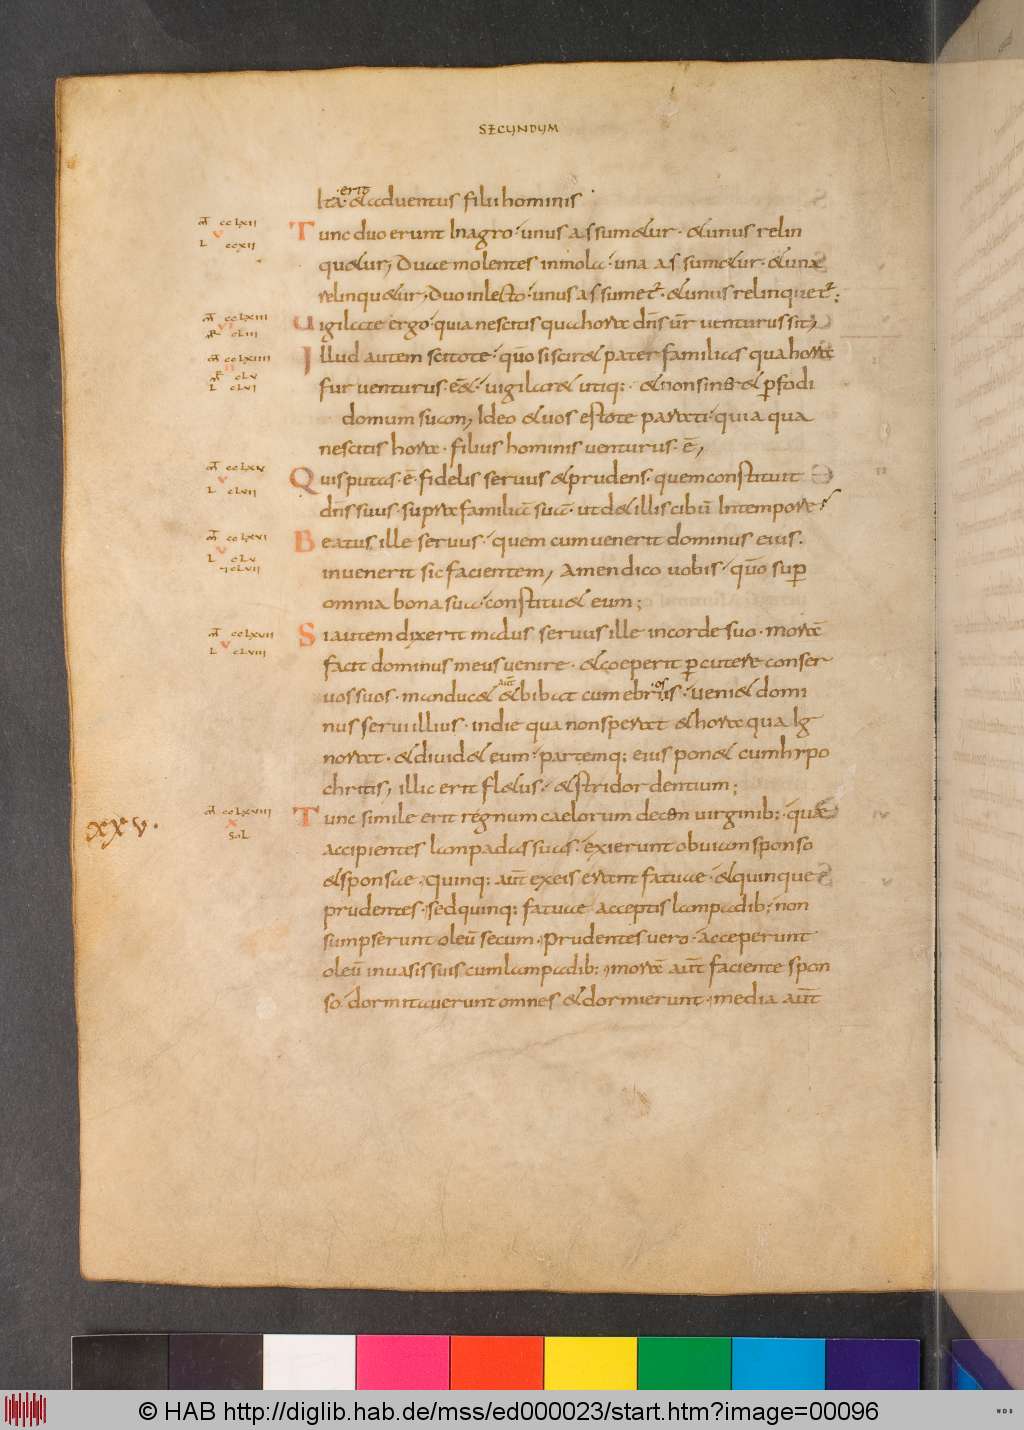 SECUNDUM
erit
Ita · & aduentus filii hominis ·
m̄ cclxii
Tunc duo erunt In agro · unus assum&ur · & unus relin
v
L ccxii
qu&ur, Duae molentes in mola · una assum&ur · & una
relinqu&ur, Duo in lecto · unus assumet² · & unus relinquet² ;
m̄ cclxiii
vi
mr̄ clii
Uigilate ergo · quia nescitis qua hora dn̄s ur̄ uenturus sit,
m̄ cclxiiii
ii
r̄ clv
L clvi
Illud autem scitote · qūo si scir& pater familias qua hora
fur uenturus · ēe& · uigilar& utiq: · & non siner& ꝑfodi
domum suam, Ideo & uos estote parati · quia qua
nescitis hora · filius hominis uenturus · ē,
m̄ cclxv
v
L clvii
Quis putas · ē · fidelis seruus & prudens · quem constituit
dn̄s suus · supra familiā suā · ut d& illis cibū In tempore
m̄ cclxvi
v
L clv
⁊ clvii
Beatus ille seruus · quem cum uenerit dominus eius ·
inuenerit sic facientem, Amen dico uobis · qūo suꝑ
omnia bona sua · constitu& eum ;
m̄ cclxvii
v
L clviii
Si autem dixerit malus seruus ille in corde suo · morā
facit dominus meus uenire · & coeperit ꝑcutere conser
aūt
os
uos suos · manduc& & bibat cum ebriis · ueni& domi
nus serui illius · in die qua non sperat & hora qua Ig
norat · & diuid& eum · partemq: eius pon& cum hypo
chritis, illic erit fl&us · & stridor dentium ;
xxv ·
m̄ cclxviii
x
SoL
Tunc simile erit regnum caelorum decem uirginib: · quae
accipientes lampadas suas · exierunt obuiam sponso
& sponsae · quinq: aūt ex eis erant fatuae · & quinque
prudentes · sed quinq: fatuae acceptis lampadib: non
sumpserunt oleū secum · Prudentes uero · acceperunt
oleū in uasis suis cum lampadib: · morā aūt faciente spon
so dormitauerunt omnes & dormierunt · media aūt
© HAB http://diglib.hab.de/mss/ed000023/start.htm?image=00096